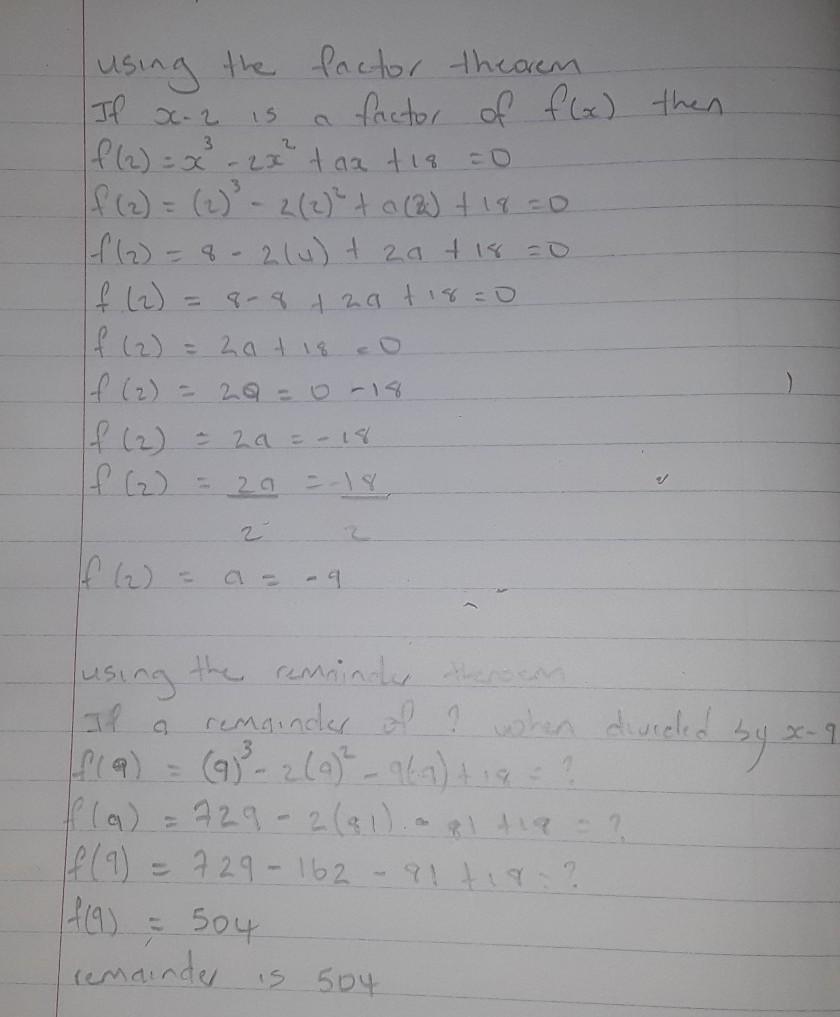 using the factor theorem
If x-2 is a factor of f(x) then
f(2) = x³ - 2x² + ax + 18 = 0
f(2) = (2)³ - 2(2)² + a(2) + 18 = 0
f(2) = 8 - 2(4) + 2a + 18 = 0
f(2) = 8-8 + 2a + 18 = 0
f(2) = 2a + 18 = 0
f(2) = 2a = 0 - 18
f(2) = 2a = -18
f(2) = 2a = -18
2 2
f(2) = a = -9
using the remainder theroem
If a remainder of ? when divided by x-9
f(9) = (9)³ - 2(9)² - 9(9) + 18 = ?
f(9) = 729 - 2(81) - 81 + 18 = ?
f(9) = 729 - 162 - 81 + 18 = ?
f(9) = 504
remainder is 504